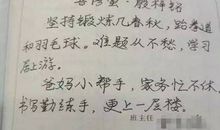 坚持锻炼几春秋，跆拳道
和羽毛球。难题从不愁，学习
居上游。
爸妈小帮手，家务忙不休，
书写勤练手，更上一层楼。
班主任